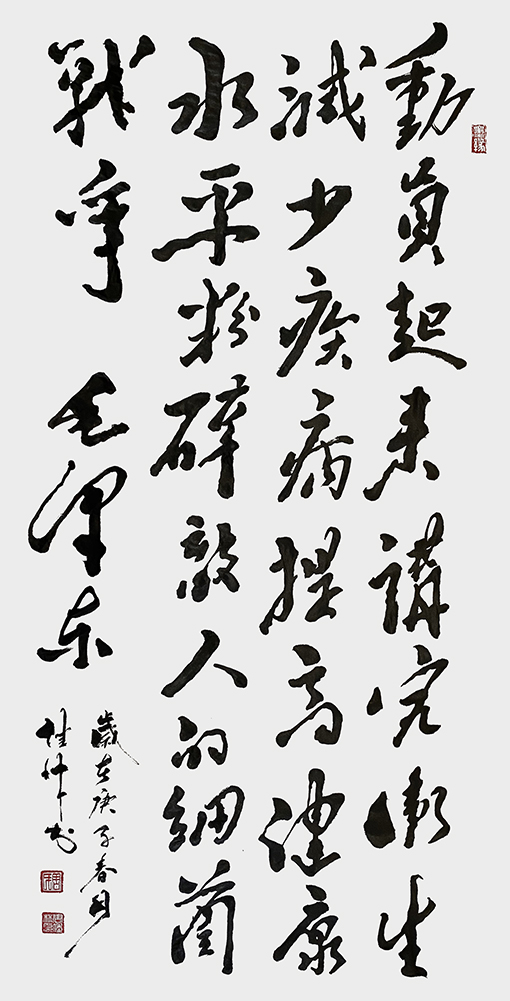 動員起来講究衛生
減少疾病提高健康
水平粉碎敵人的細菌
戰爭 毛澤东
歲在庚子春月
书